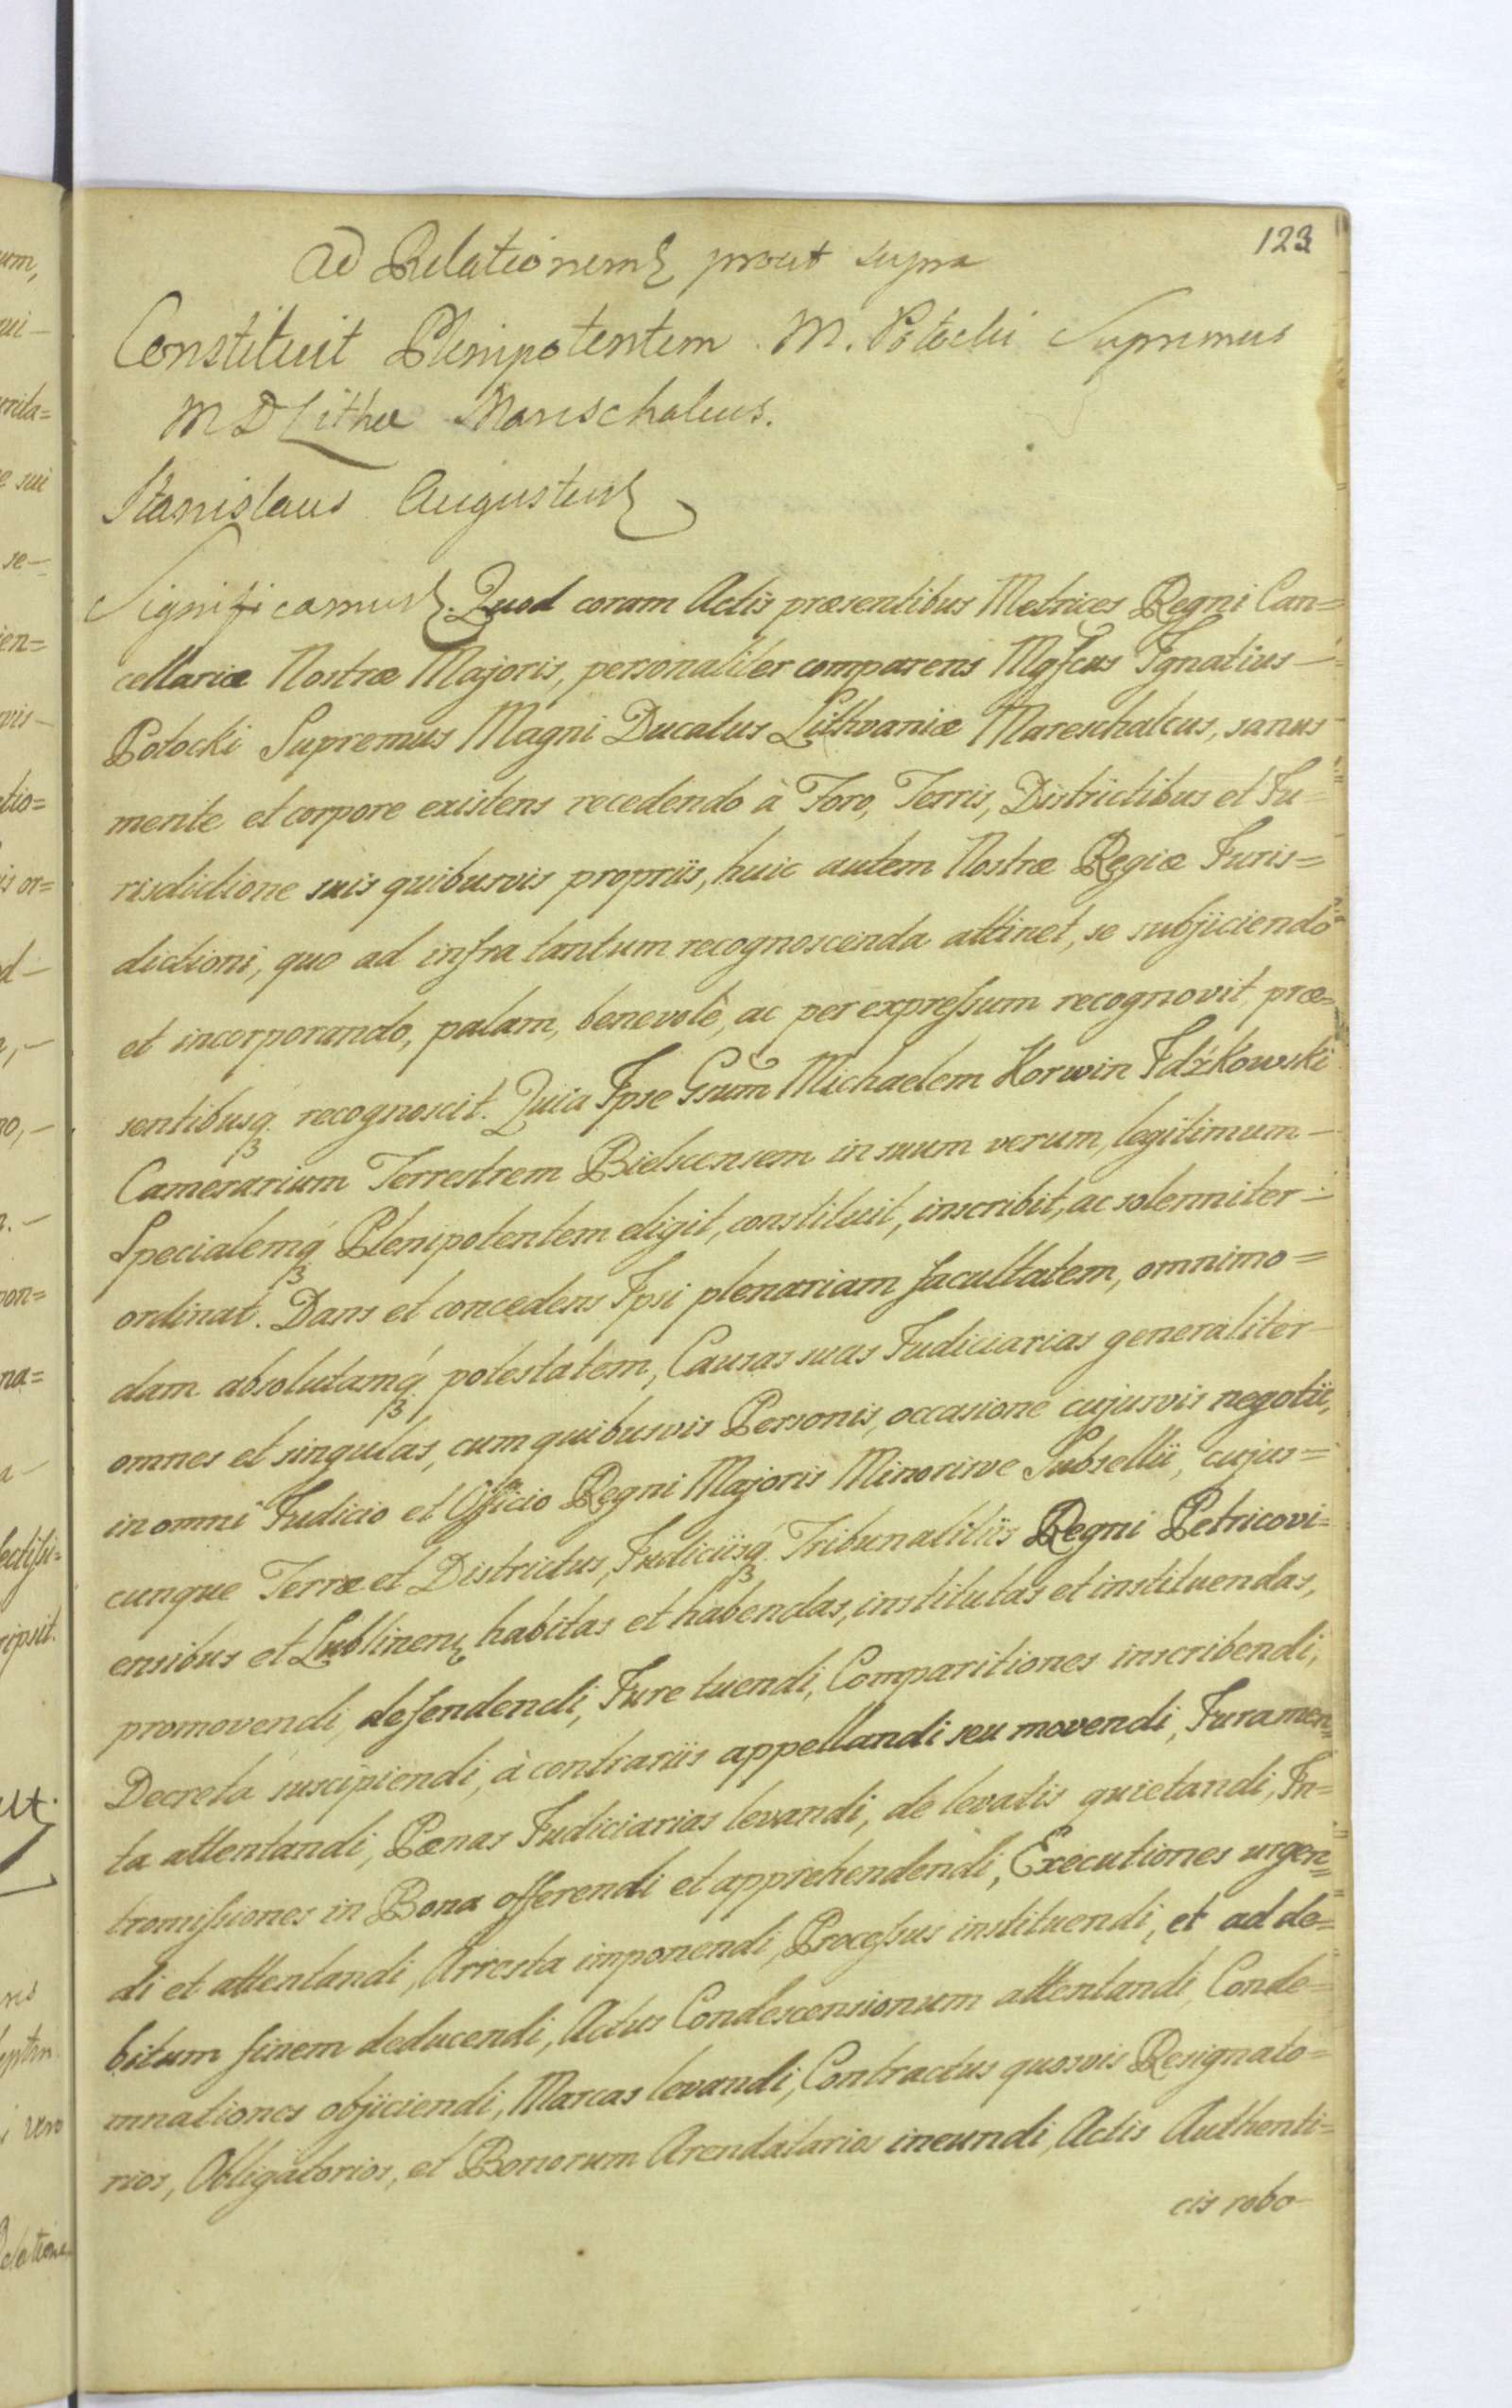 123
Ad Relationem prout supra
Constituit Plenipotentem M. Potocki Supremus
M D Lithae Marischalcus.
Stanislaus Augustus
Significamus. Quod coram Actis præsentibus Metrices Regni Can=
cellariæ Nostræ Majoris, personaliter comparens Mgfcus Ignatius —
Potocki Supremus Magni Ducatus Lithvaniæ Mareschalcus, sanus
mente et corpore existens recedendo à Foro, Terris, Districtibus et Ju-
risdictione suis quibusvis propriis, huic autem Nostræ Regiæ Juris=
dictioni, quo ad infra tantum recognoscenda attinet, se subjiciendo
et incorporando, palam, benevolè, ac per expressum recognovit, præ=
sentibusq3 recognoscit. Quia Ipse Gsum Michaelem Korwin Idźkowski
Camerarium Terrestrem Bielscensem in suum verum, legitimum —
Specialemq3 Plenipotentem eligit, constituit, inscribit, ac solenniter —
ordinat. Dans et concedens Ipsi plenariam facultatem, omnimo=
dam absolutamq3 potestatem, Causas suas Judiciarias generaliter
omnes et singulas, cum quibusvis Personis, occasione cujusvis negotii,
in omni Judicio et Officio Regni Majoris Minorisve Subsellii, cujus=
cunque Terræ et Districtus, Judiciisq3 Tribunalitiis Regni Petricovi=
ensibus et Lublinen habitas et habendas, institutas et instituendas,
promovendi, defendendi, Jure tuendi, Comparitiones inscribendi,
Decreta suscipiendi, à contrariis appellandi seu movendi, Juramen=
ta attentandi, Pænas Judiciarias levandi, de levatis quietandi, In=
tromissiones in Bona offerendi et apprehendendi, Executiones urgen=
di et attentandi, Arresta imponendi, Processus instituendi, et ad de=
bitum finem deducendi, Actus Condescensionum attentandi, Conde-
mnationes objiciendi, Marcas levandi, Contractus quosvis Resignato=
rios, Obligatorios, et Bonorum Arendatarios ineundi, Actis Authenti=
cis robo-